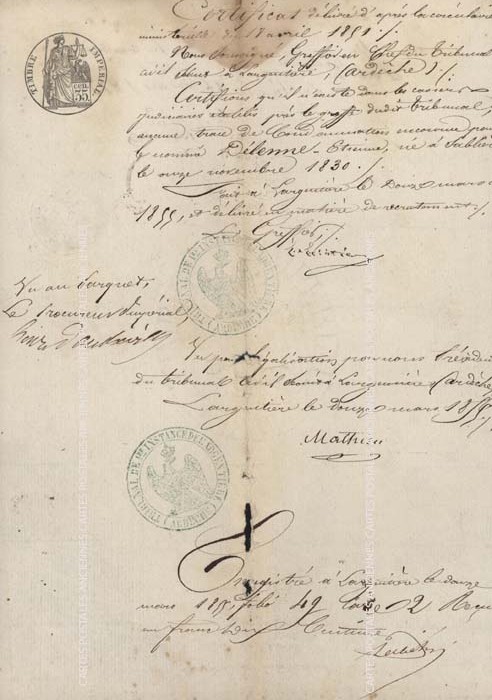 Certificat délivré d'après la circulaire
ministérielle du avril 1851 /.
Nous soussigné, Greffier en Chef du Tribunal
civil séant à Largentière, (Ardèche) /.
Certifions qu'il n'existe dans les casiers
judiciaires établis près le greffe dudit tribunal,
aucune trace de Condamnation encourue par
le nommé Dilenne Etienne, né à Sablier
le onze novembre 1830 /.
Fait à Largentière le douze mars
1855, et délivré en matière de recrutement /.
Le Greffier /.
TIMBRE IMPERIAL
35 cen
TRIBUNAL DE 1RE INSTANCE DE L'ARGENTIERE (ARDECHE)
Vu au Parquet,
Le procureur Impérial,
Vu par légalisation par nous Président
du tribunal civil séant à Largentière (Ardèche)
Largentière le douze mars 1855
Mathieu
TRIBUNAL DE 1RE INSTANCE DE L'ARGENTIERE (ARDECHE)
Enregistré à Largentière le douze
mars 1855, folio 49 case 2 Reçu
un franc dix Centimes